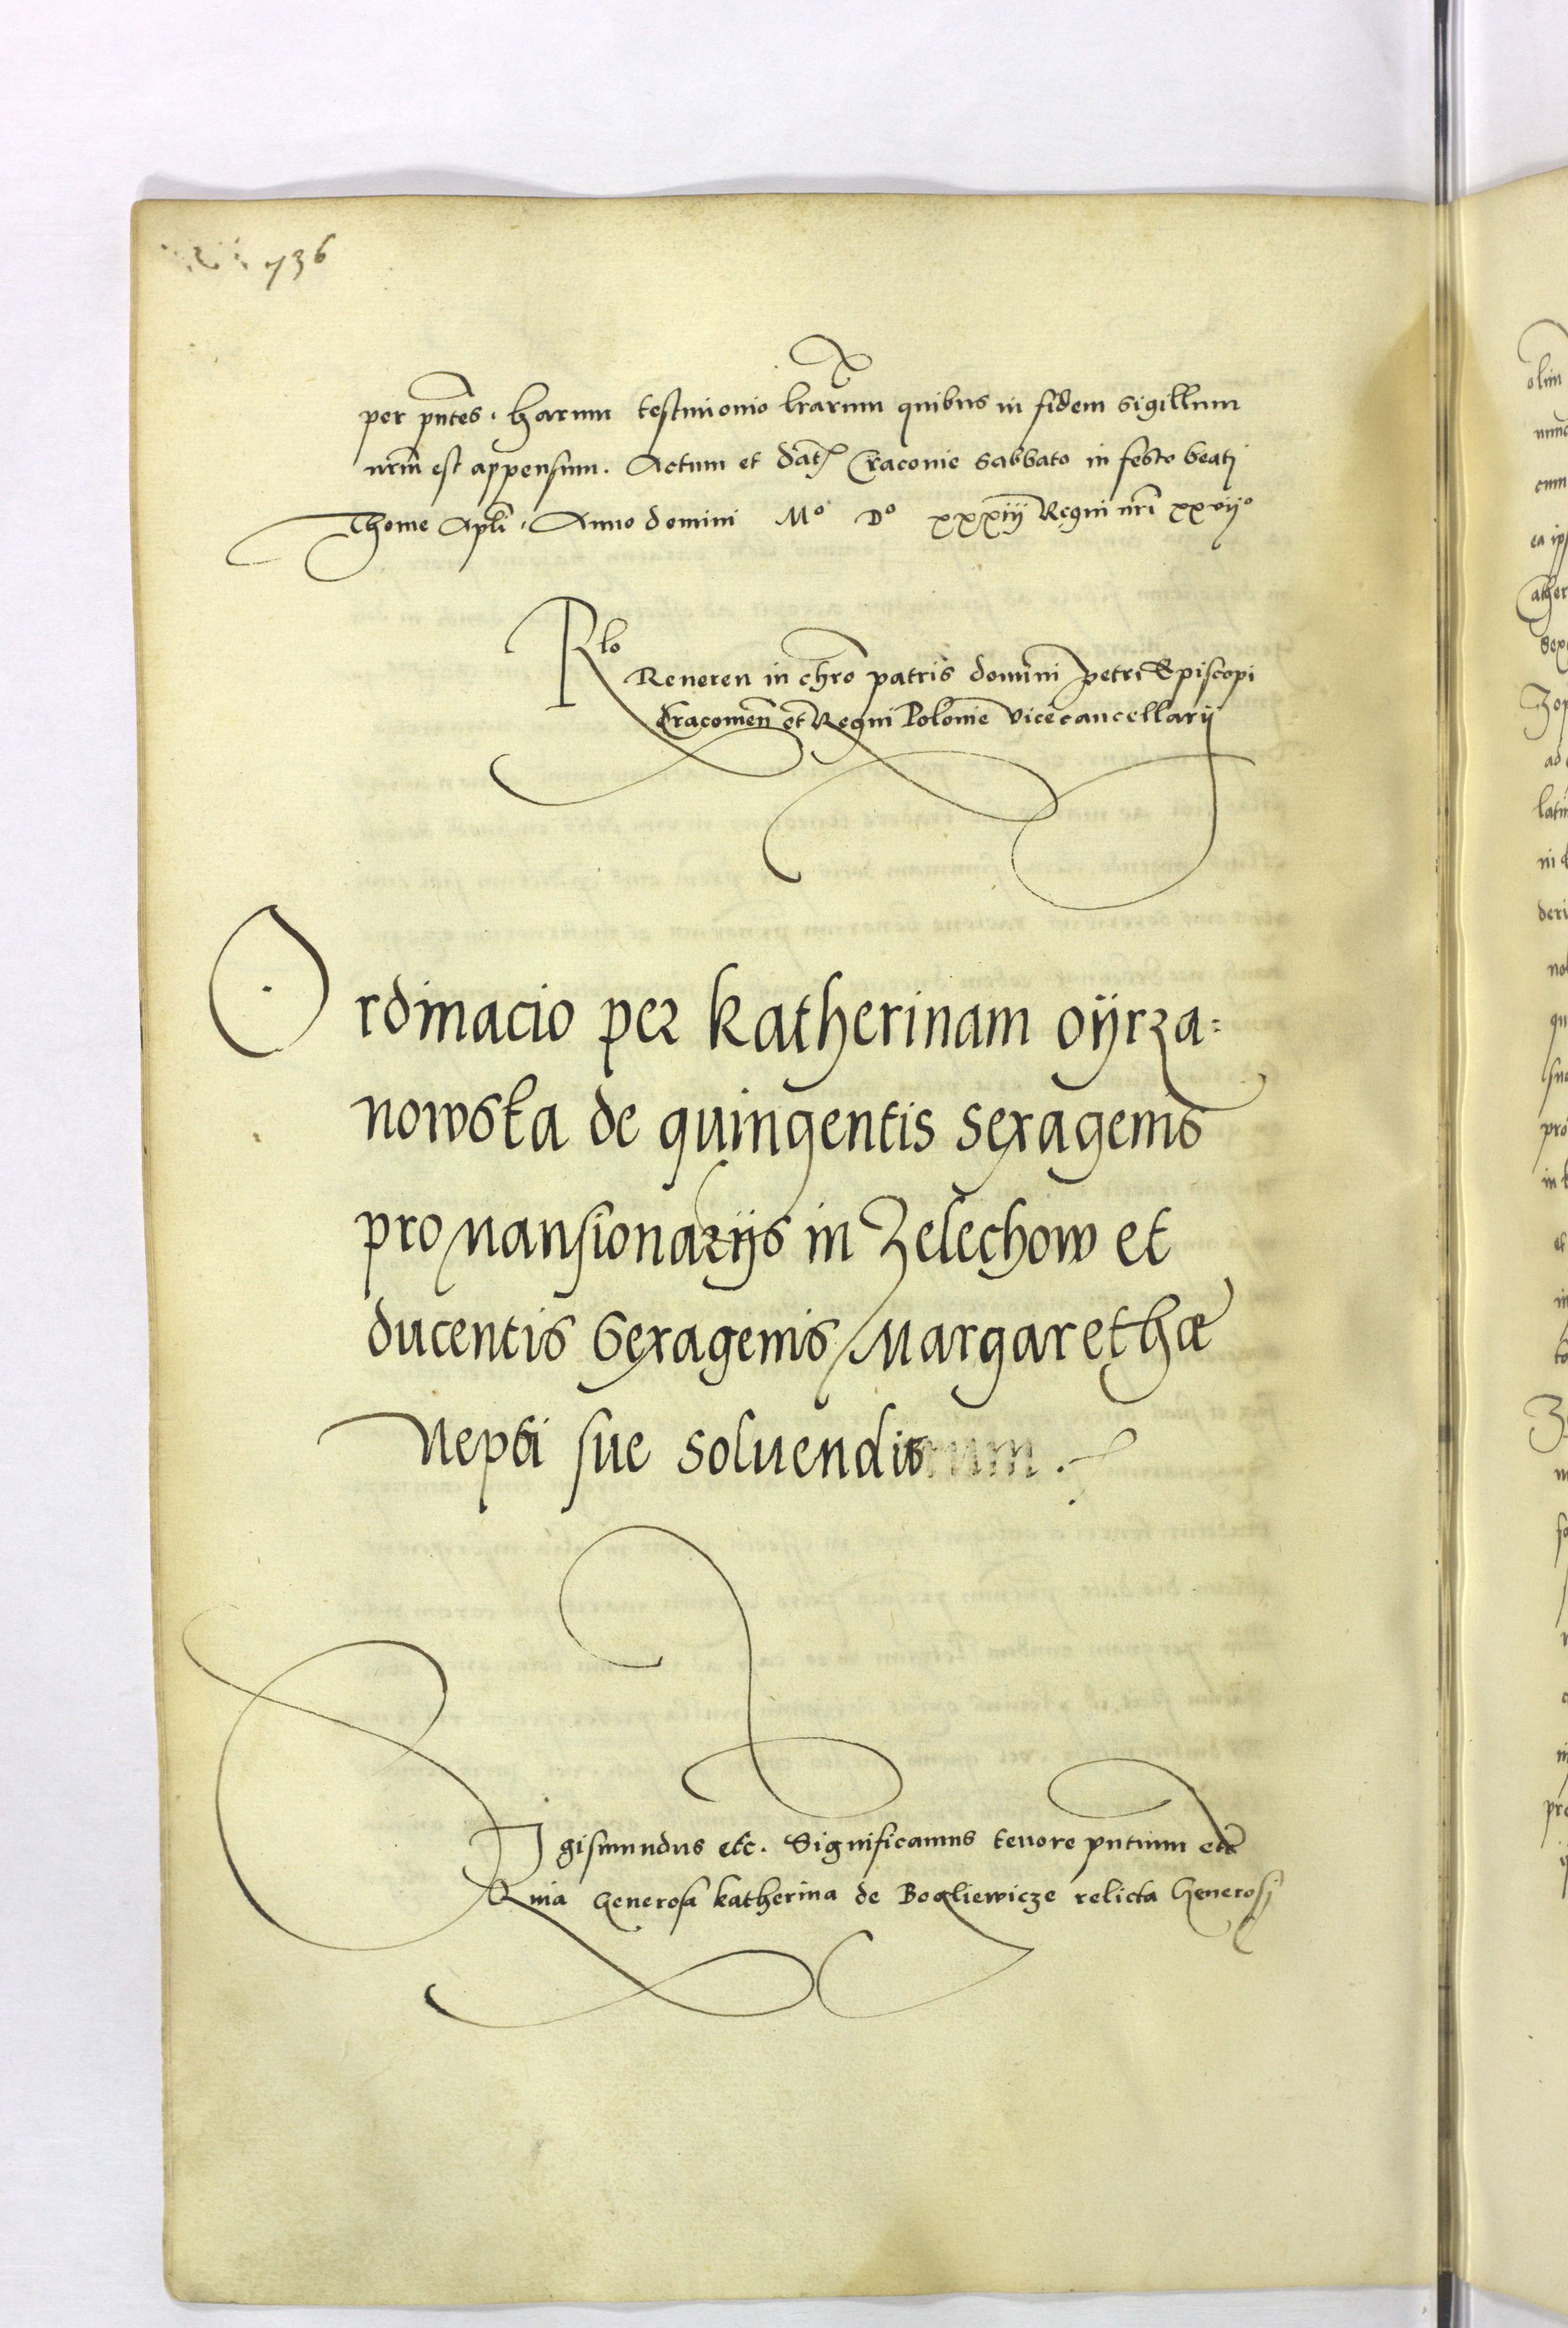 736
per pntes. Harum testimonio lrarum quibus in fidem sigillum
nrm est appensum. Actum et dat Craconie sabbato in festo beati
Thome Apli. Anno domini Mº Dº xxxiij Regni nri xxvijº
Rlo
Reueren in chro patris domini petri Episcopi
Cracouien et Regni Polonie vicecancellarij
Ordinacio per Katherinam oÿrza=
nowska de quingentis sexagenis
pro Mansionarijs in Zelechow et
ducentis sexagenis Margarethæ
Nepti sue soluendis
Sigismundus etc. Significamus tenore pntium etc
Quia Generosa Katherina de Bogliewicze relicta Generosi